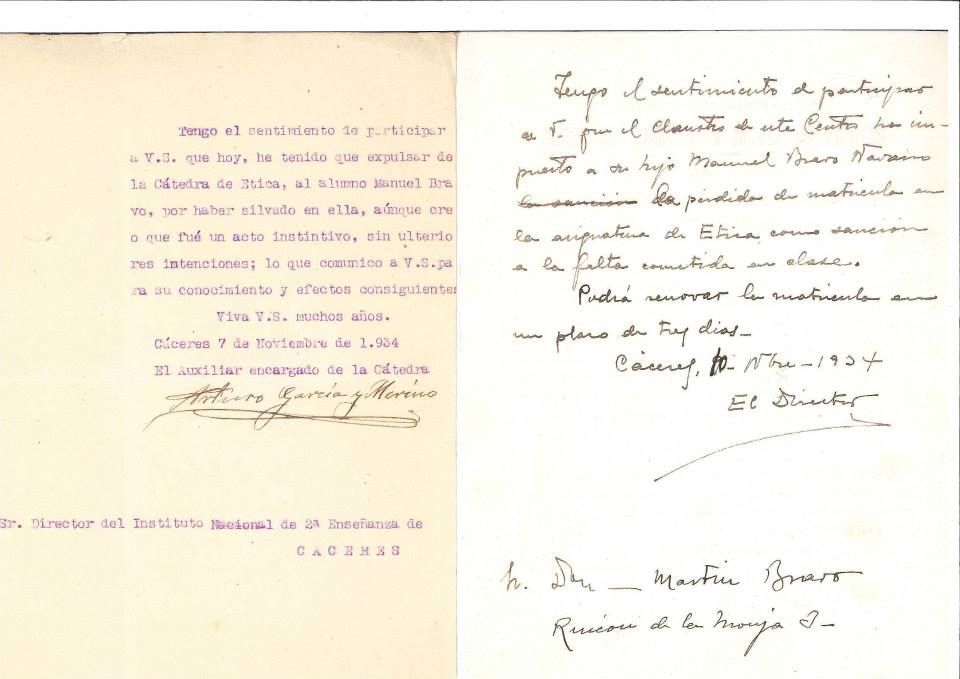 Tengo el sentimiento de participar
a V.S. que hoy, he tenido que expulsar de
la Cátedra de Etica, al alumno Manuel Bra
vo, por haber silvado en ella, aúnque cre
o que fué un acto instintivo, sin ulterio
res intenciones; lo que comunico a V.S.pa
ra su conocimiento y efectos consiguientes
Viva V.S. muchos años.
Cáceres 7 de Noviembre de 1.934
El Auxiliar encargado de la Cátedra
Arturo García y Merino
Sr. Director del Instituto Nacional de 2ª Enseñanza de
CACERES
Tengo el sentimiento de participar
a V. que el Claustro de este Centro ha im-
puesto a su hijo Manuel Bravo Navarro
la sancion la pérdida de matrícula en
la asignatura de Etica como sanción
a la falta cometida en clase.
Podrá renovar la matrícula en
un plazo de tres dias-
Cáceres, 10- Nbre-1934
El Director
Sr. Don — Martin Bravo
Rincon de la Monja